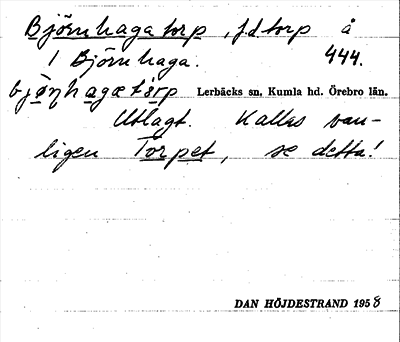 Björnhagatorp, f.d torp å
1 Björnhaga. 444.
bjö̀ṇhagatȯrp Lerbäcks sn. Kumla hd. Örebro län.
Utlagt. Kallas van-
ligen Torpet, se detta!
DAN HÖJDESTRAND 1958